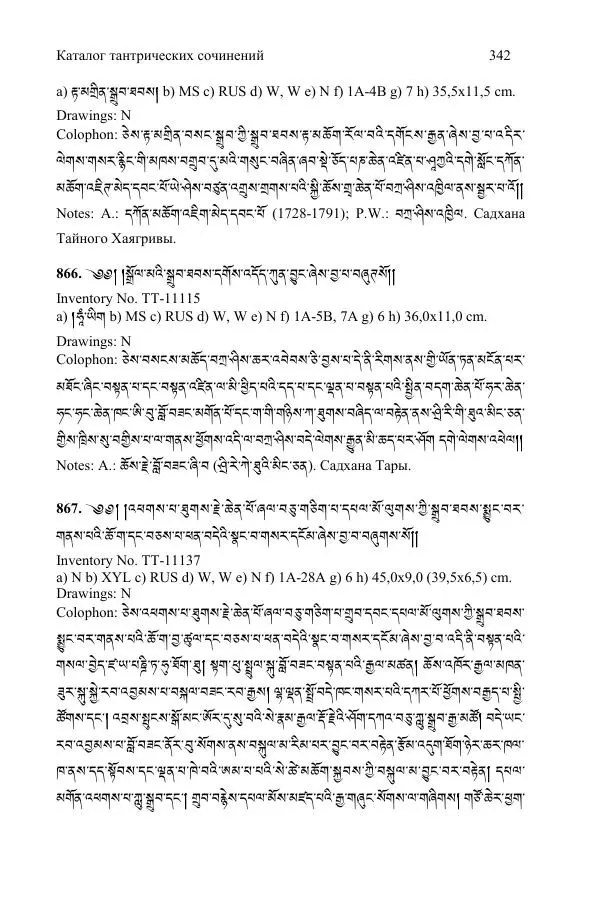 Каталог тантрических сочинений 342
a) རྟ་མགྲིན་སྒྲུབ་ཐབས། b) MS c) RUS d) W, W e) N f) 1A-4B g) 7 h) 35,5x11,5 cm.
Drawings: N
Colophon: ཅེས་རྟ་མགྲིན་གསང་སྒྲུབ་ཀྱི་སྒྲུབ་ཐབས་རྟ་མཆོག་རོལ་བའི་དགོངས་རྒྱན་ཞེས་བྱ་བ་འདིར་
ལེགས་གསར་རྙིང་གི་མཁས་བགྲུབ་དུ་མའི་གསུང་བཞིན་ཞབ་སྡེ་ཅོད་པཎ་ཆེན་འཛིན་པ་ཤཱཀྱའི་དགེ་སློང་དཀོན་
མཆོག་འཇིཊ་མེད་དབང་པོ་ཡེ་ཤེས་བཙུན་འགྲུས་གྲགས་པའི་སྐྱི་ཚོས་གྲྭ་ཆེན་པོ་བཀྲ་ཤིས་འཁྱིལ་ནས་སྦྱར་པ་འོ།།
Notes: A.: དཀོན་མཆོག་འཇིག་མེད་དབང་པོ (1728-1791); P.W.: བཀྲ་ཤིས་འཁྱིལ. Садхана
Тайного Хаягривы.
866. ༄༅། །སྒྲོལ་མའི་སྒྲུབ་ཐབས་དགོས་འདོད་ཀུན་བྱུང་ཞེས་བྱ་པ་བཞུཊསོ།།
Inventory No. TT-11115
a) །ཧཱུྃ་ཡིག b) MS c) RUS d) W, W e) N f) 1A-5B, 7A g) 6 h) 36,0x11,0 cm.
Drawings: N
Colophon: ཅེས་བསངས་མཆོད་བཀྲ་ཤིས་ཆར་འབེབས་ཅི་བྱས་པ་དེ་ནི་རིགས་ནས་གྱི་ཡོན་ཏན་མངོན་པར་
མཐོང་ཞིང་བསྟན་པ་དང་བསྟན་འཛིན་ལ་མི་ཕྱིད་པའི་དད་པ་དང་ལྡན་པ་བསྟན་པའི་སྦྱིན་བདག་ཆེན་པོ་ཧར་ཆེན་
ཧང་ཧང་ཆེན་ཁང་ཨི་བུ་བློ་བཟང་མགོན་པོ་དང་ག་གི་གཉིས་ཀ་ཐུགས་བཞིད་ལ་བརྟེན་ནས་ཤྲི་རི་གི་ཐུའ་མིང་ཅན་
གྱིས་ཁྲིས་སུ་བགྱིས་པ་ལ་གནས་ཕྱོགས་འདི་ལ་བཀྲ་ཤིས་བདེ་ལེགས་རྒྱུན་མི་ཆད་པར་ཤོག དགེ་ལེགས་འཕེལ།།
Notes: A.: ཆོས་རྗེ་བློ་བཟང་ཞི་བ (ཤྲི་རི་ཀེ་ཐུའི་མིང་ཅན). Садхана Тары.
867. ༄༅། །འཕགས་པ་ཐུགས་རྗེ་ཆེན་པོ་ཞལ་བཅུ་གཅིག་པ་དཔལ་མོ་ལུགས་ཀྱི་སྒྲུབ་ཐབས་སྨྱུང་བར་
གནས་པའི་ཆོ་ག་དང་བཅས་པ་ཕན་བདེའི་སྣང་བ་གསར་དངོམ་ཞེས་བྱ་བ་བཞུགས་སོ།།
Inventory No. TT-11137
a) N b) XYL c) RUS d) W, W e) N f) 1A-28A g) 6 h) 45,0x9,0 (39,5x6,5) cm.
Drawings: N
Colophon: ཅེས་འཕགས་པ་ཐུགས་རྗེ་ཆེན་པོ་ཞལ་བཅུ་གཅིག་པ་གྲུབ་དབང་དཔལ་མོ་ལུགས་ཀྱི་སྒྲུབ་ཐབས་
སྨྱུང་བར་གནས་པའི་ཆོ་ག་བྱ་ཚུལ་དང་བཅས་པ་ཕན་བདེའི་སྣང་བ་གསར་དངོམ་ཞེས་བྱ་བ་འདི་ནི་བསྟན་པའི་
གསལ་བྱེད་ཛ་ཡ་པཎྜི་ཏ་ཧུ་ཐོག་ཐུ། སྟག་ཕུ་སྤྲུལ་སྐུ་བློ་བཟང་བསྟན་པའི་རྒྱལ་མཚན། ཆོས་འཁོར་རྒྱལ་མཁན་
ཟུར་སྐུ་སྐྱེ་རབ་འབྱམས་པ་བསྐལ་བཟང་རབ་རྒྱས། ལྷ་ལྡན་སྤྲོ་བདེ་ཁང་གསར་པའི་དཀར་པོ་ཕྱོགས་བརྒྱད་པ་སྤྱི་
ཚོགས་དང་། འབྲས་སྤུངས་སྒོ་མང་ཨོར་དུ་སུ་བའི་སེ་རྣམ་རྒྱལ་རྡོ་རྗེའི་ཤོག་དཀའ་བཅུ་ཀླུ་སྒྲུབ་རྒྱ་མཚོ། བདེ་ཡང་
རབ་འབྱམས་པ་བློ་བཟང་ནོར་བུ་སོགས་ནས་བསྐུལ་མ་རིམ་པར་བྱུང་བར་བརྟེན་རྩོམ་འདུག་ཐོག་ཉེར་ཆར་ཁལ་
ཁ་ནས་དད་སྟོབས་དང་ལྡན་པ་ཁེ་བའི་ཨམ་པ་པའི་སེ་ཚེ་མཆོག་སྐྱབས་ཀྱི་བསྐུལ་མ་བྱུང་བར་བརྟེན། དཔལ་
མགོན་འཕགས་པ་ཀླུ་སྒྲུབ་དང་། གྲུབ་བརྙེས་དཔལ་མོས་མཛད་པའི་རྒྱ་གཞུང་སོགས་ལ་གཞིགས། གཙོ་ཆེར་ཕྱག་